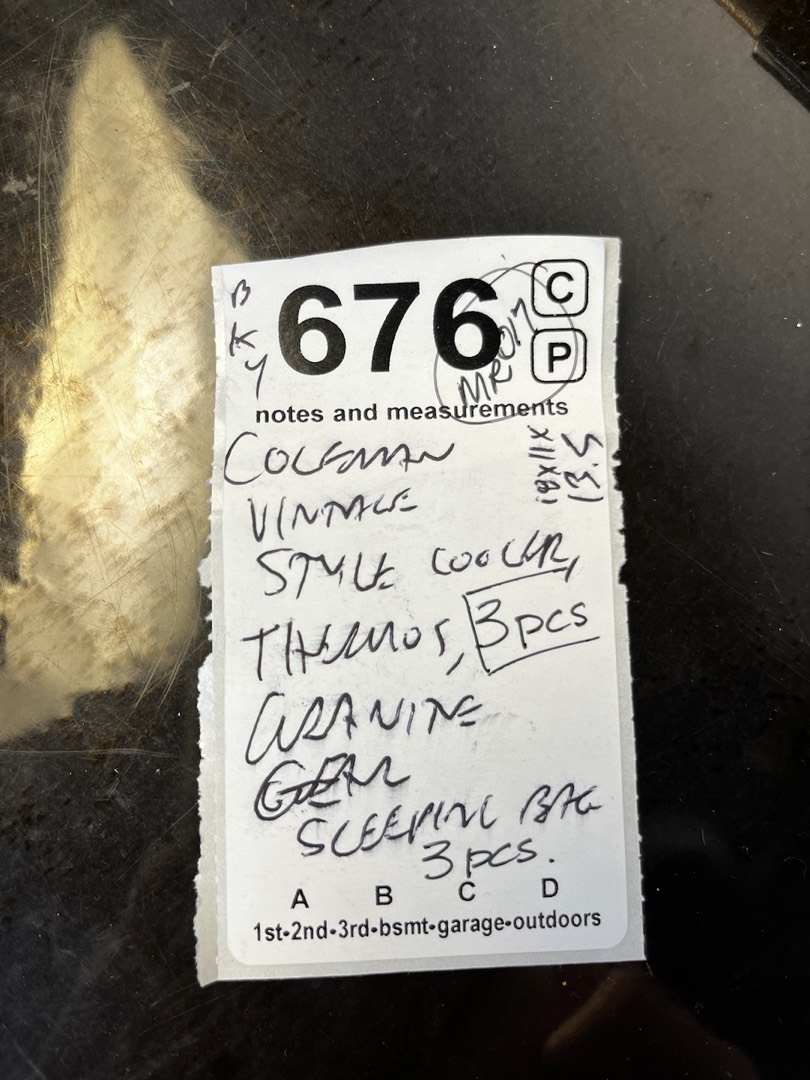 B
K
Y
676
C
P
MR017
notes and measurements
COLEMAN
18X11X
13.5
VINTAGE
STYLE COOLER,
THERMOS, 3 pcs
GRANITE
GEAR
SLEEPING BAG
3 pcs.
A B C D
1st-2nd-3rd-bsmt-garage-outdoors